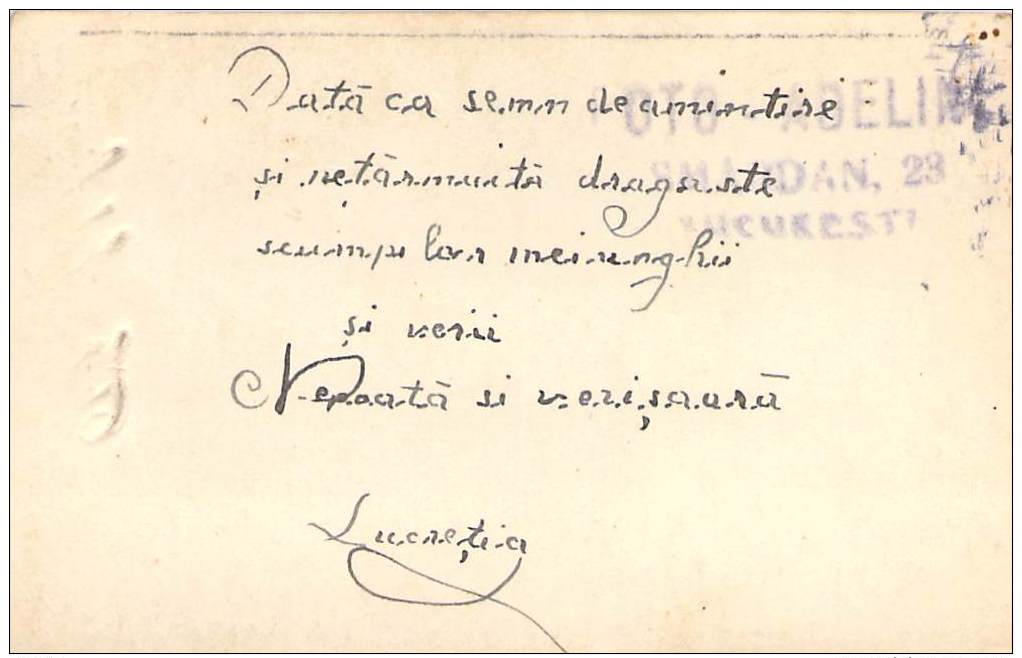 Dată ca semn de amintire
și nețărmuită dragoste
scumpilor mei unghii
și verii
Nepoată si verișoară
Lucreția
FOTO ADELIN
SMÂRDAN, 23
BUCUREȘTI